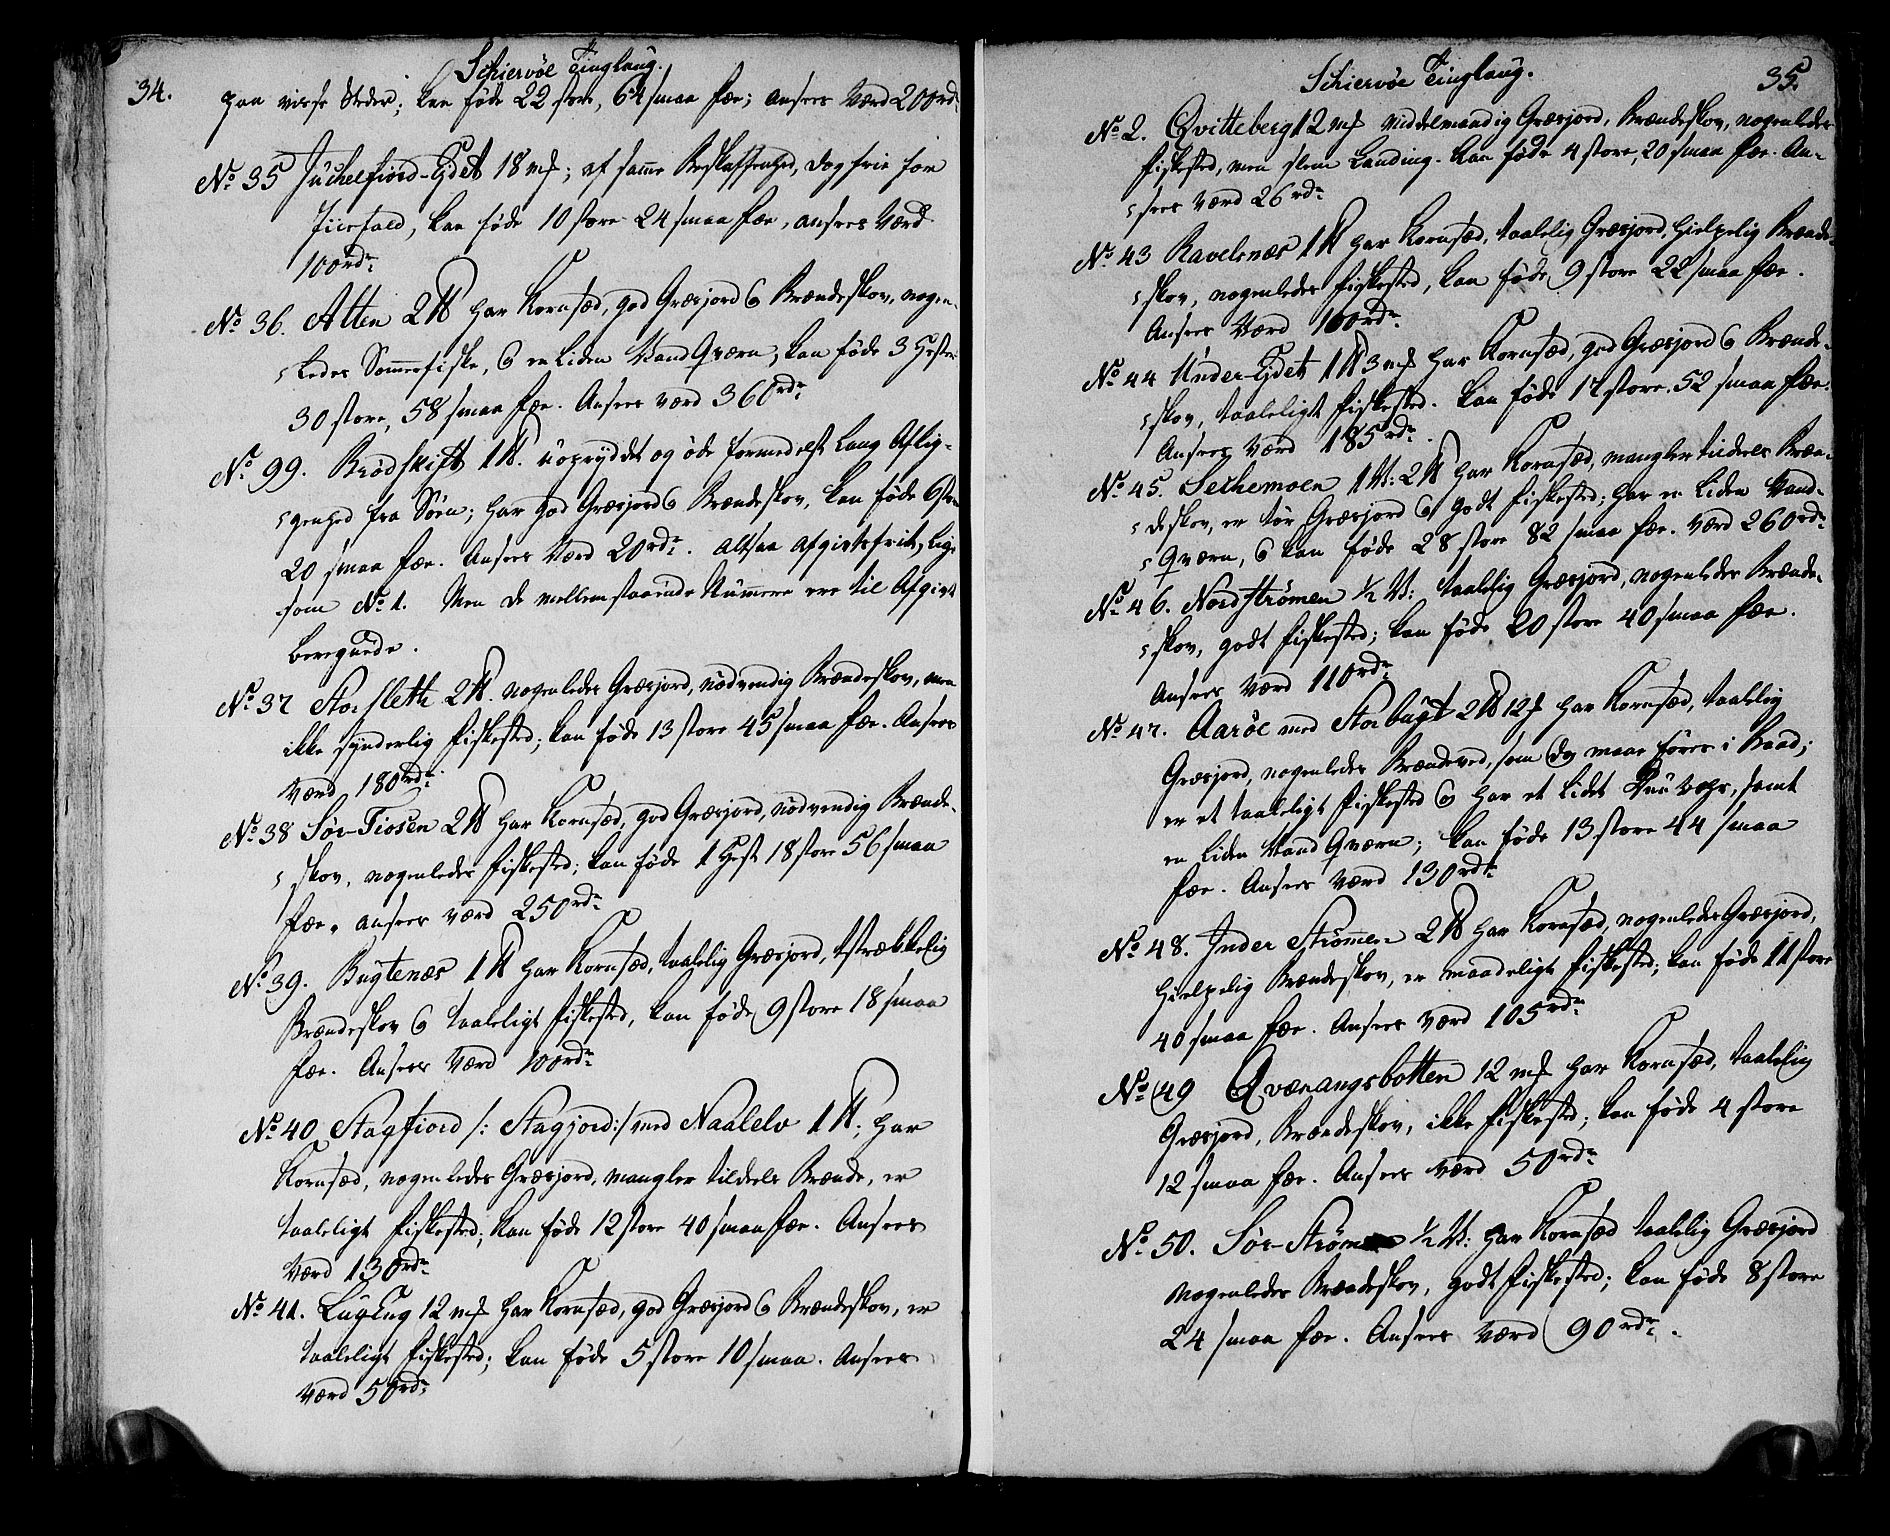 34.
Schiervöe Tinglaug.
paa visse Steder; kan føde 22 store, 64 smaa Fæe; ansees Værd 200rdr
No 35 Juchelfiord-Eidet 18 m℔; af samme Beskaffenhed, dog frie for
kan føde 10 store 24 smaa Fæe, ansees Værd
100rdr
No 36. Alten 2 ℔ har Kornsæd, god Græsjord og Brændeskov, nogen-
ledes Sommerfiske, og en liden VandQværn, kan føde 3 Heste
30 store, 58 smaa Fæe. Ansees værd 360rdr
No 99. Brödskift 1 ℔. uopryddet og øde formedelst lang Aflig-
genhed fra Søen; har god Græsjord og Brændeskov, kan føde 6 store
20 smaa Fæe. Ansees Værd 20rdr. Altsaa Afgivtsfrit, lige
som No 1. Men de mellemstaaende Numere ere til Afgivt
beregnede.
No 37 Storsleth 2 ℔. nogenledes Græsjord, nødvendig Brændeskov, men
ikke synderlig Fiskested; kan føde 13 store 45 smaa Fæe. Ansees
Værd 180rdr
No 38 Sör-Fiosen 2 ℔ har Kornsæd, god Græsjord, nødvendig Brænde-
skov, nogenledes Fiskested; kan føde 1 Hest 18 store 56 smaa
Fæe, ansees værd 250rdr
No 39. Bugtenæs 1 ℔ har Kornsæd, taalelig Græsjord, tstrækkelig
Brændeskov og taaleligt Fiskested, kan føde 9 store 18 smaa
Fæe. Ansees Værd 100rdr
No 40 Stagfiord /: Stagjord :/ med Naalelv 1 ℔; har
Kornsæd, nogenledes Græsjord, mangler tildeels Brænde, er
taaleligt Fiskested; kan føde 12 store 40 smaa Fæe. Ansees
Værd 130rdr
No 41. Luglug 12 m℔ har Kornsæd, god Græsjord og Brændeskov, er
taaleligt Fiskested; kan føde 5 store 10 smaa. Ansees
værd 50rdr
Schiervöe Tinglaug.
35.
No 2. Qvitteberg 12 m℔ middelmaadig Græsjord, Brændeskov, nogenledes
Fiskested, men slem Landing. Kan føde 4 store, 20 smaa Fæe. An-
sees Værd 26rdr
No 43 Ravelsnæs 1 ℔ har Kornsæd, taalelig Græsjord, hielpelig Brænde-
skov, nogenledes Fiskested, kan føde 9 store 22 smaa Fæe.
Ansees Værd 100rdr
No 44 Under-Eidet 1 ℔ 3 m℔ har Kornsæd, god Græsjord og Brænde-
skov, taaleligt Fiskested. kan føde 17 store. 52 smaa Fæe.
Ansees Værd 185rdr.
No 45. Sechemoen 1 V: 2 ℔ har Kornsæd, mangler tildeels Bræn-
deskov, er tør Græsjord og godt Fiskested; har en liden Vand-
Qværn, og kan føde 28 store 82 smaa Fæe. Værd 260rdr
No 46. Nordströmen 1/2 V: taalelig Græsjord, nogenledes Brænde-
skov, godt Fiskested; kan føde 20 store 40 smaa Fæe.
Ansees Værd 110rdr
No 47. Aaröe med Storbugt 2 ℔ 12 ℔ har Kornsæd, taalelig
Græsjord, nogenledes Brændeved, som dog maae føres i Baad;
er et taaleligt Fiskested og har et lidet samt
en liden VandQværn; kan føde 13 store 44 smaa
Fæe. Ansees Værd 130rdr
No 48. Inder Strömmen 2 ℔ har Kornsæd, nogenledes Græsjord,
hielpelig Brændeskov, er maadeligt Fiskested; kan føde 11 store
40 smaa Fæe. Ansees Værd 105rdr
No 49 Qvænangsbotten 12 m℔ har Kornsæd, taalelig
Græsjord, Brændeskov, ikke Fiskested; kan føde 4 store
12 smaa Fæe. Ansees Værd 50rdr
No 50. Sör-Ström 1/2 V: har Kornsæd taalelig Græsjord
nogenledes Brændeskov, godt Fiskested; kan føde 8 store
24 smaa Fæe. Ansees Værd 90rdr.